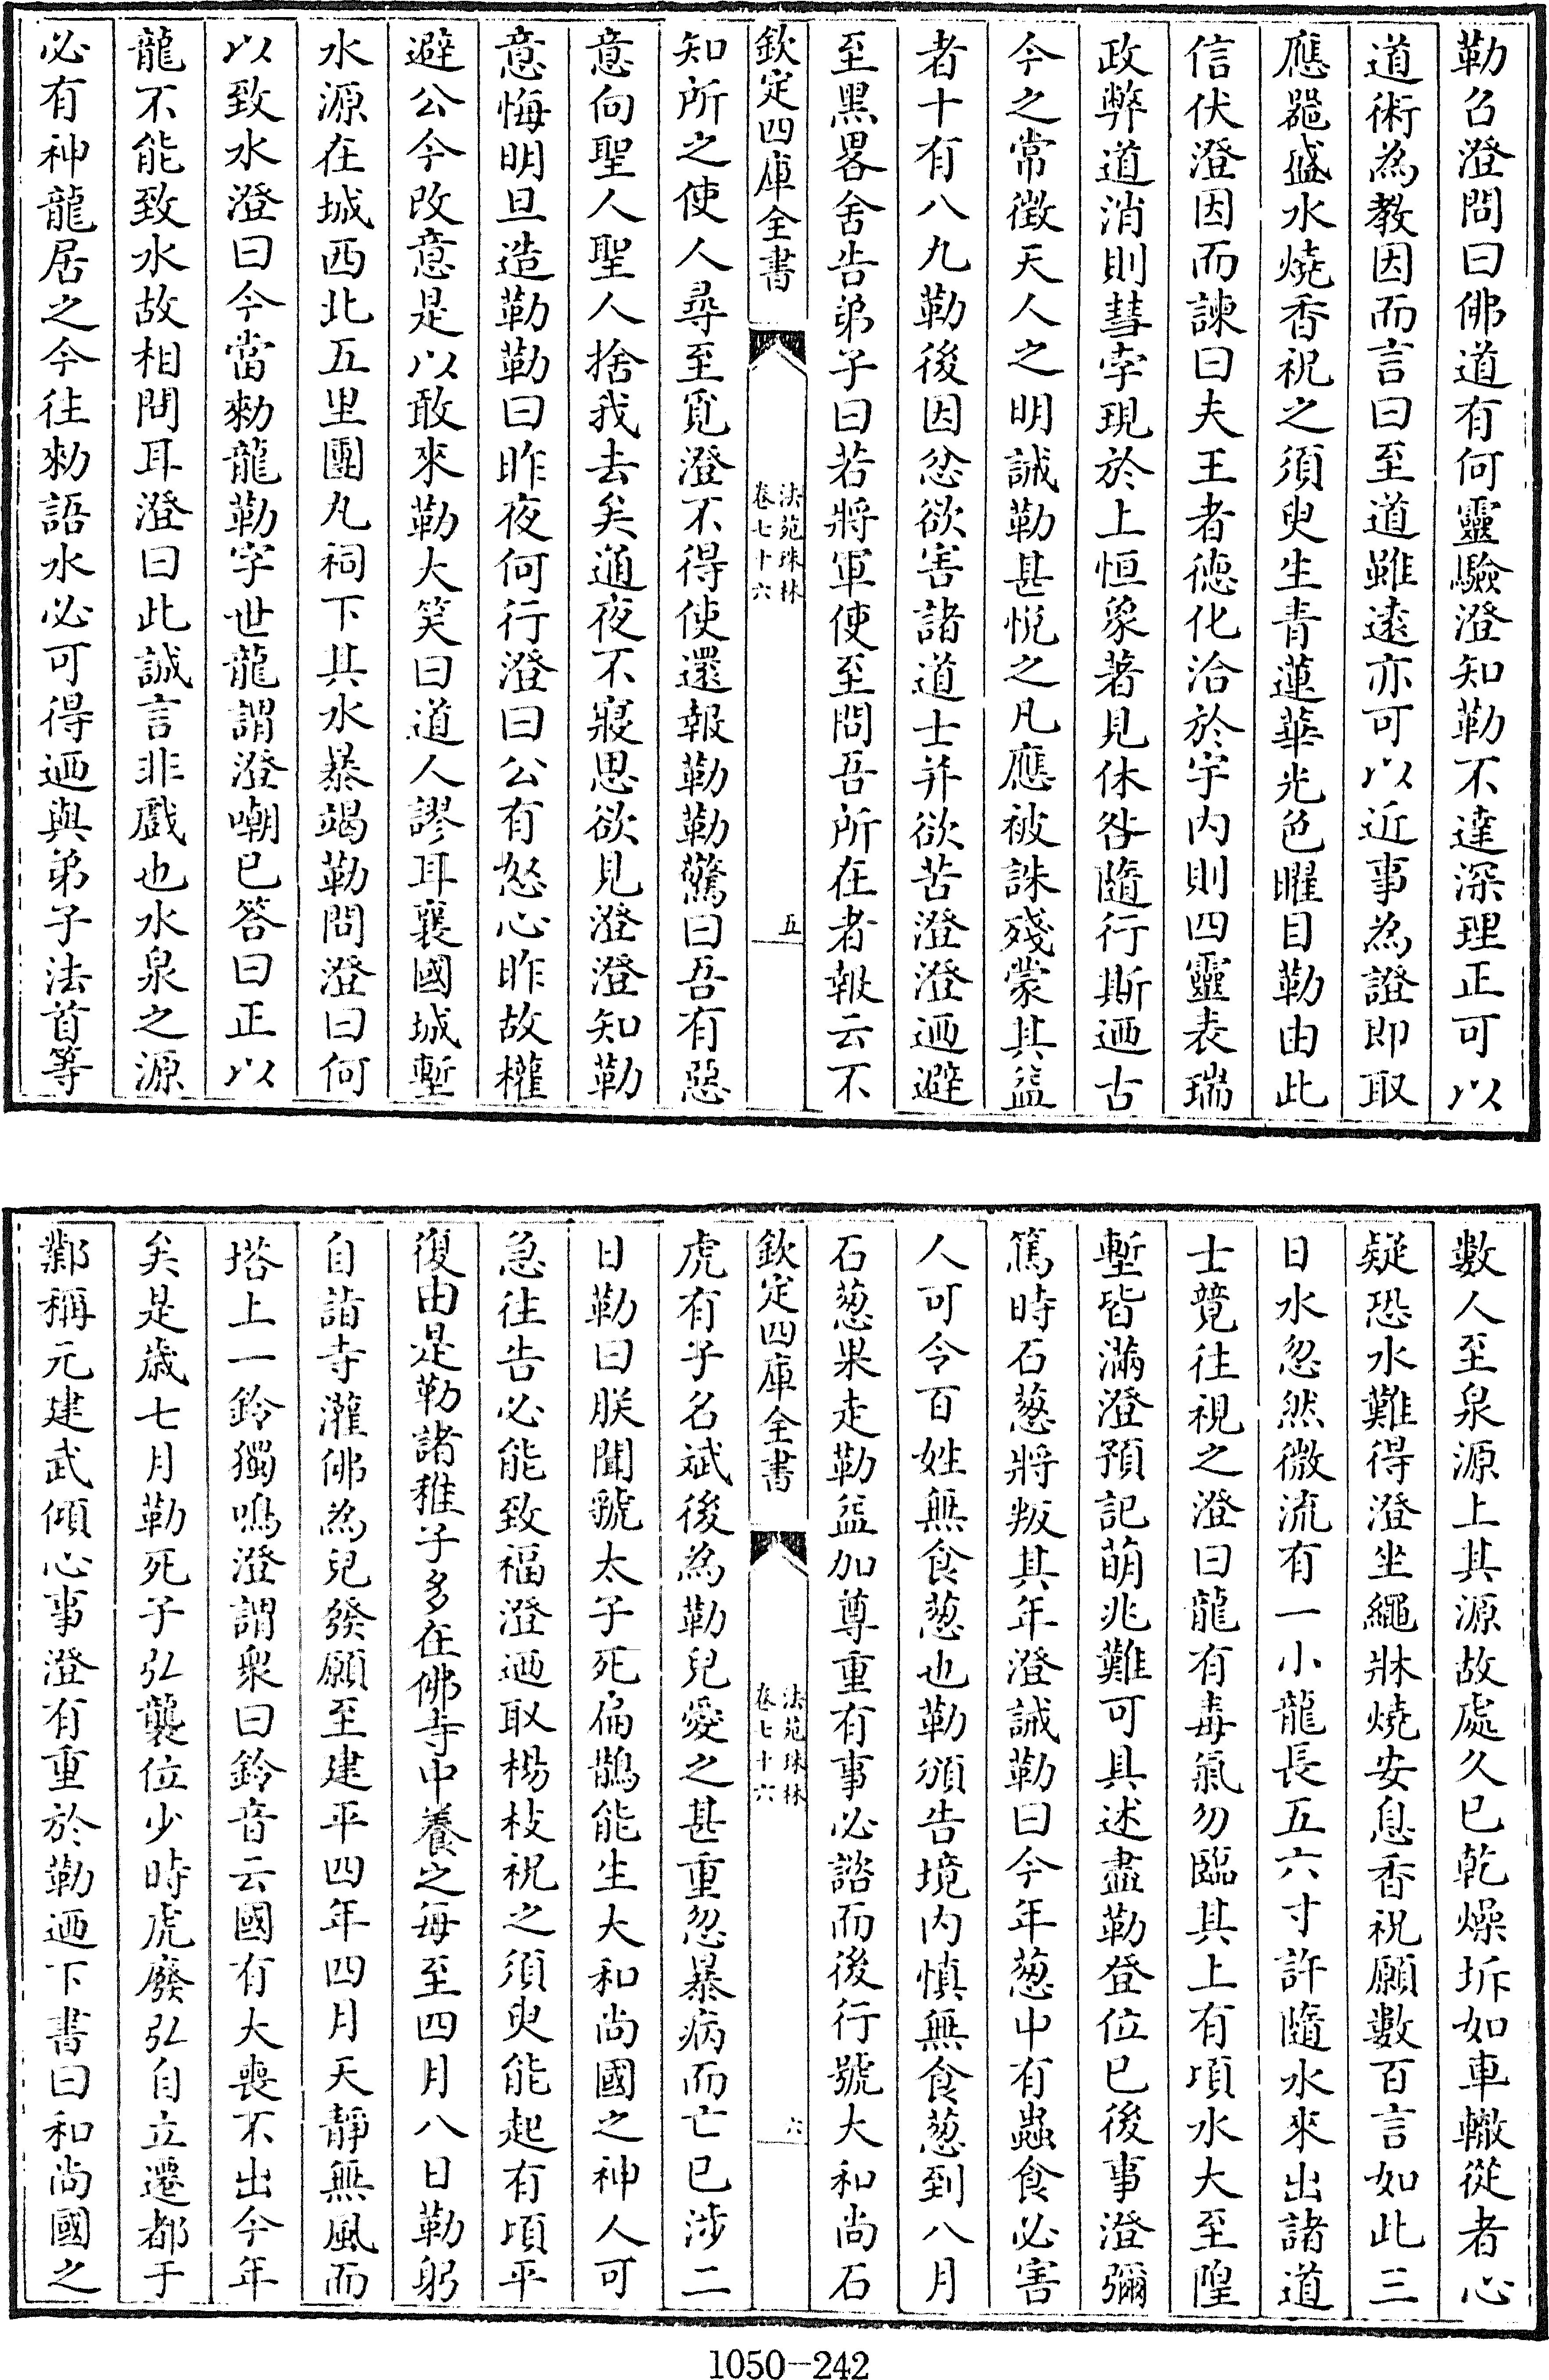 勒召澄問曰佛道有何靈驗澄知勒不達深理正可以
道術為教因而言曰至道雖遠亦可以近事為證即取
應器盛水燒香祝之須臾生青蓮華光色曜目勒由此
信伏澄因而諫曰夫王者德化洽於宇内則四靈表瑞
政弊道消則彗孛現於上恒象著見休咎隨行斯迺古
今之常徵天人之明誡勒甚悅之凡應被誅殘蒙其益
者十有八九勒後因忿欲害諸道士并欲苦澄澄迺避
至黑畧舍告弟子曰若將軍使至問吾所在者報云不
欽定四庫全書
法苑珠林
卷七十六
五
知所之使人尋至覓澄不得使還報勒勒驚曰吾有惡
意向聖人聖人捨我去矣通夜不寢思欲見澄澄知勒
意悔明旦造勒勒曰昨夜何行澄曰公有怒心昨故權
避公今改意是以敢來勒大笑曰道人謬耳襄國城塹
水源在城西北五里團丸祠下其水暴竭勒問澄曰何
以致水澄曰今當勑龍勒字世龍謂澄嘲已答曰正以
龍不能致水故相問耳澄曰此誠言非戲也水泉之源
必有神龍居之今往勑語水必可得迺與弟子法首等
數人至泉源上其源故處久已乾燥坼如車轍從者心
疑恐水難得澄坐繩牀燒安息香祝願數百言如此三
日水忽然微流有一小龍長五六寸許隨水來出諸道
士競往視之澄曰龍有毒氣勿臨其上有頃水大至隍
塹皆滿澄預記萌兆難可具述盡勒登位已後事澄彌
篤時石葱將叛其年澄誡勒曰今年葱中有蟲食必害
人可令百姓無食葱也勒頒告境内慎無食葱到八月
石葱果走勒益加尊重有事必諮而後行號大和尚石
欽定四庫全書
法苑珠林
卷七十六
六
虎有子名斌後為勒兒愛之甚重忽暴病而亡已涉二
日勒曰朕聞虢太子死扁鵲能生大和尚國之神人可
急往告必能致福澄迺取楊枝祝之須臾能起有頃平
復由是勒諸稚子多在佛寺中養之每至四月八日勒躬
自詣寺灌佛為兒發願至建平四年四月天靜無風而
塔上一鈴獨鳴澄謂衆曰鈴音云國有大喪不出今年
矣是歲七月勒死子弘襲位少時虎廢弘自立遷都于
鄴稱元建武傾心事澄有重於勒迺下書曰和尚國之
1050-242